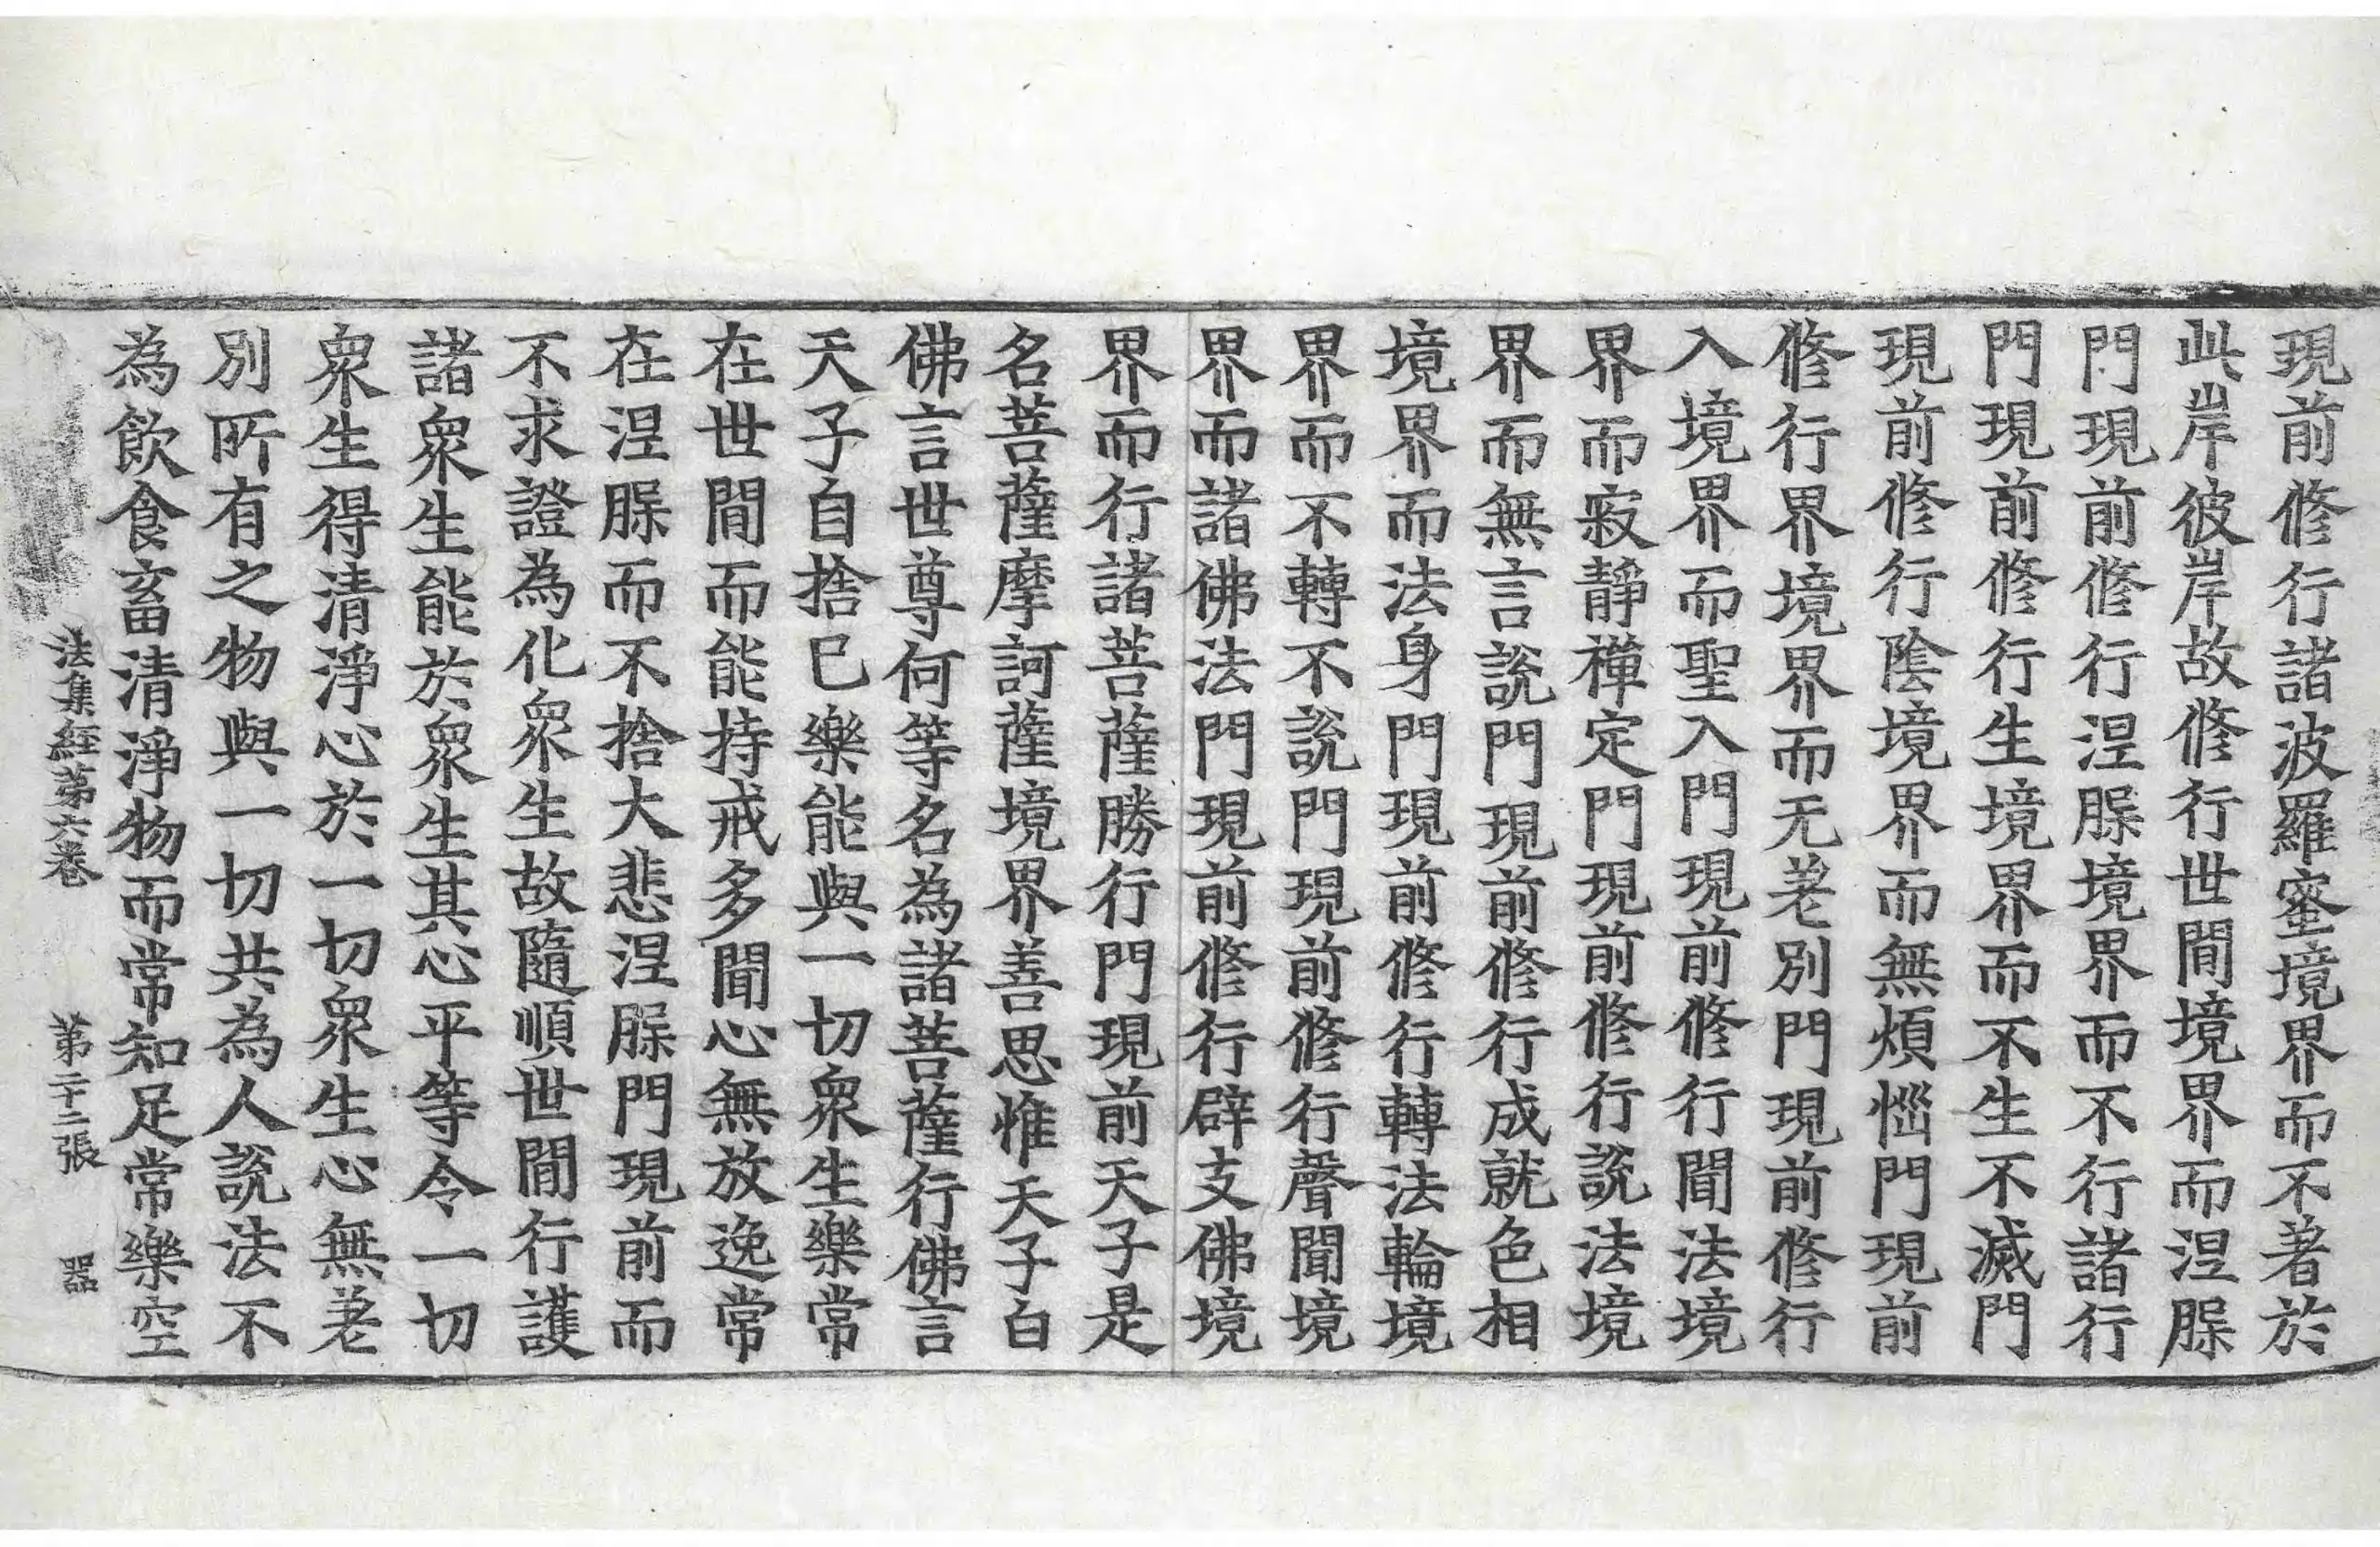 現前修行諸波羅蜜境界而不著於
此岸彼岸故修行世間境界而涅槃
門現前修行涅槃境界而不行諸行
門現前修行生境界而不生不滅門
現前修行陰境界而無煩惱門現前
修行界境界而无差別門現前修行
入境界而聖入門現前修行聞法境
界而寂靜禪定門現前修行說法境
界而無言說門現前修行成就色相
境界而法身門現前修行轉法輪境
界而不轉不說門現前修行聲聞境
界而諸佛法門現前修行辟支佛境
界而行諸菩薩勝行門現前天子是
名菩薩摩訶薩境界善思惟天子白
佛言世尊何等名為諸菩薩行佛言
天子自捨已樂能與一切衆生樂常
在世間而能持戒多聞心無放逸常
在涅槃而不捨大悲涅槃門現前而
不求證為化衆生故隨順世間行護
諸衆生能於衆生其心平等令一切
衆生得清淨心於一切衆生心無差
別所有之物與一切共為人說法不
為飲食畜清淨物而常知足常樂空
法集經第六卷 第二十二張 器